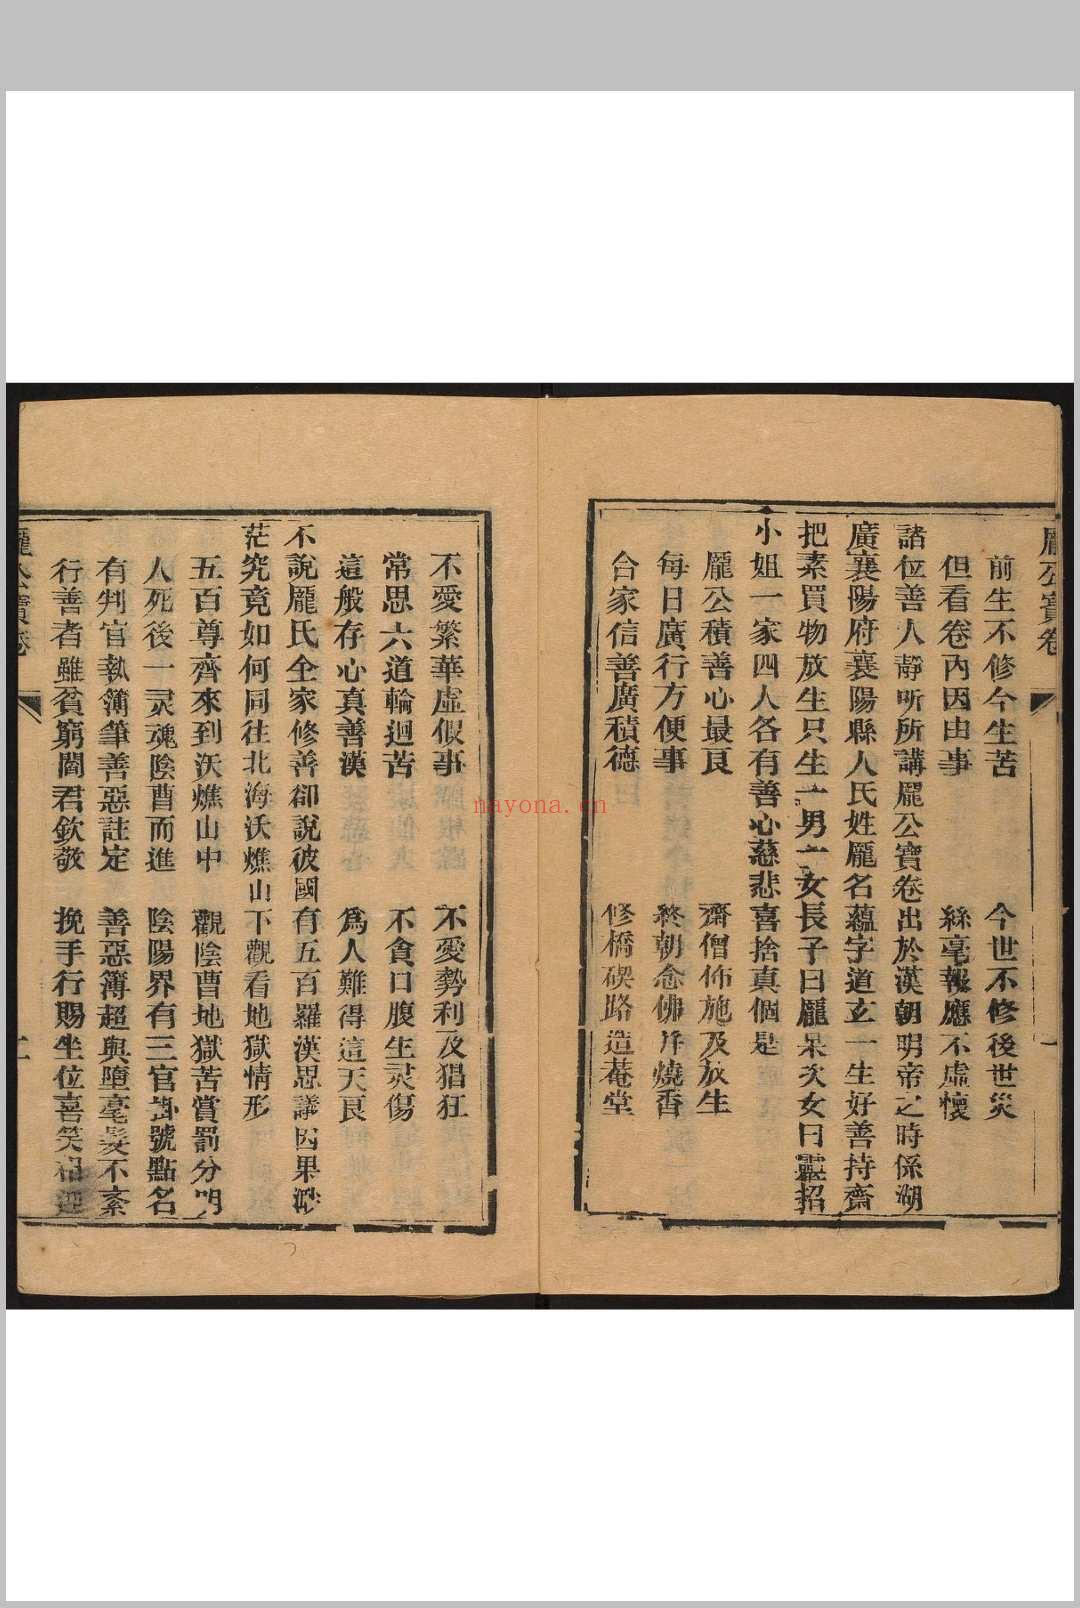 龐公寶卷
一
前生不修今生苦　今世不修後世災
但看卷內因由事　絲毫報應不虛懷
諸位善人靜听所講龐公寶卷出於漢朝明帝之時係湖
廣襄陽府襄陽縣人氏姓龐名蘊字道玄一生好善持齋
把素買物放生只生一男一女長子曰龐杲次女曰靈招
小姐一家四人各有善心慈悲喜捨真個是
龐公積善心最良　齋僧佈施及放生
每日廣行方便事　終朝念佛并燒香
合家信善廣積德　修橋碶路造菴堂
不愛繁華虛假事　不愛勢利及猖狂
常思六道輪迴苦　不貪口腹生灵傷
這般存心真善漢　爲人難得這天良
不說龐氏全家修善卻說彼國有五百羅漢思議因果渺
茫究竟如何同往北海沃燋山下觀看地獄情形
五百尊齊來到沃燋山中　觀陰曹地獄苦賞罰分明
人死後一灵魂陰曹而進　陰陽界有三官掛號點名
有判官執簿筆善惡註定　善惡簿超與墮毫髮不紊
行善者雖貧窮閻君欽敬　挽手行賜坐位喜笑相迎
龐公寶卷
二
nayona.cn